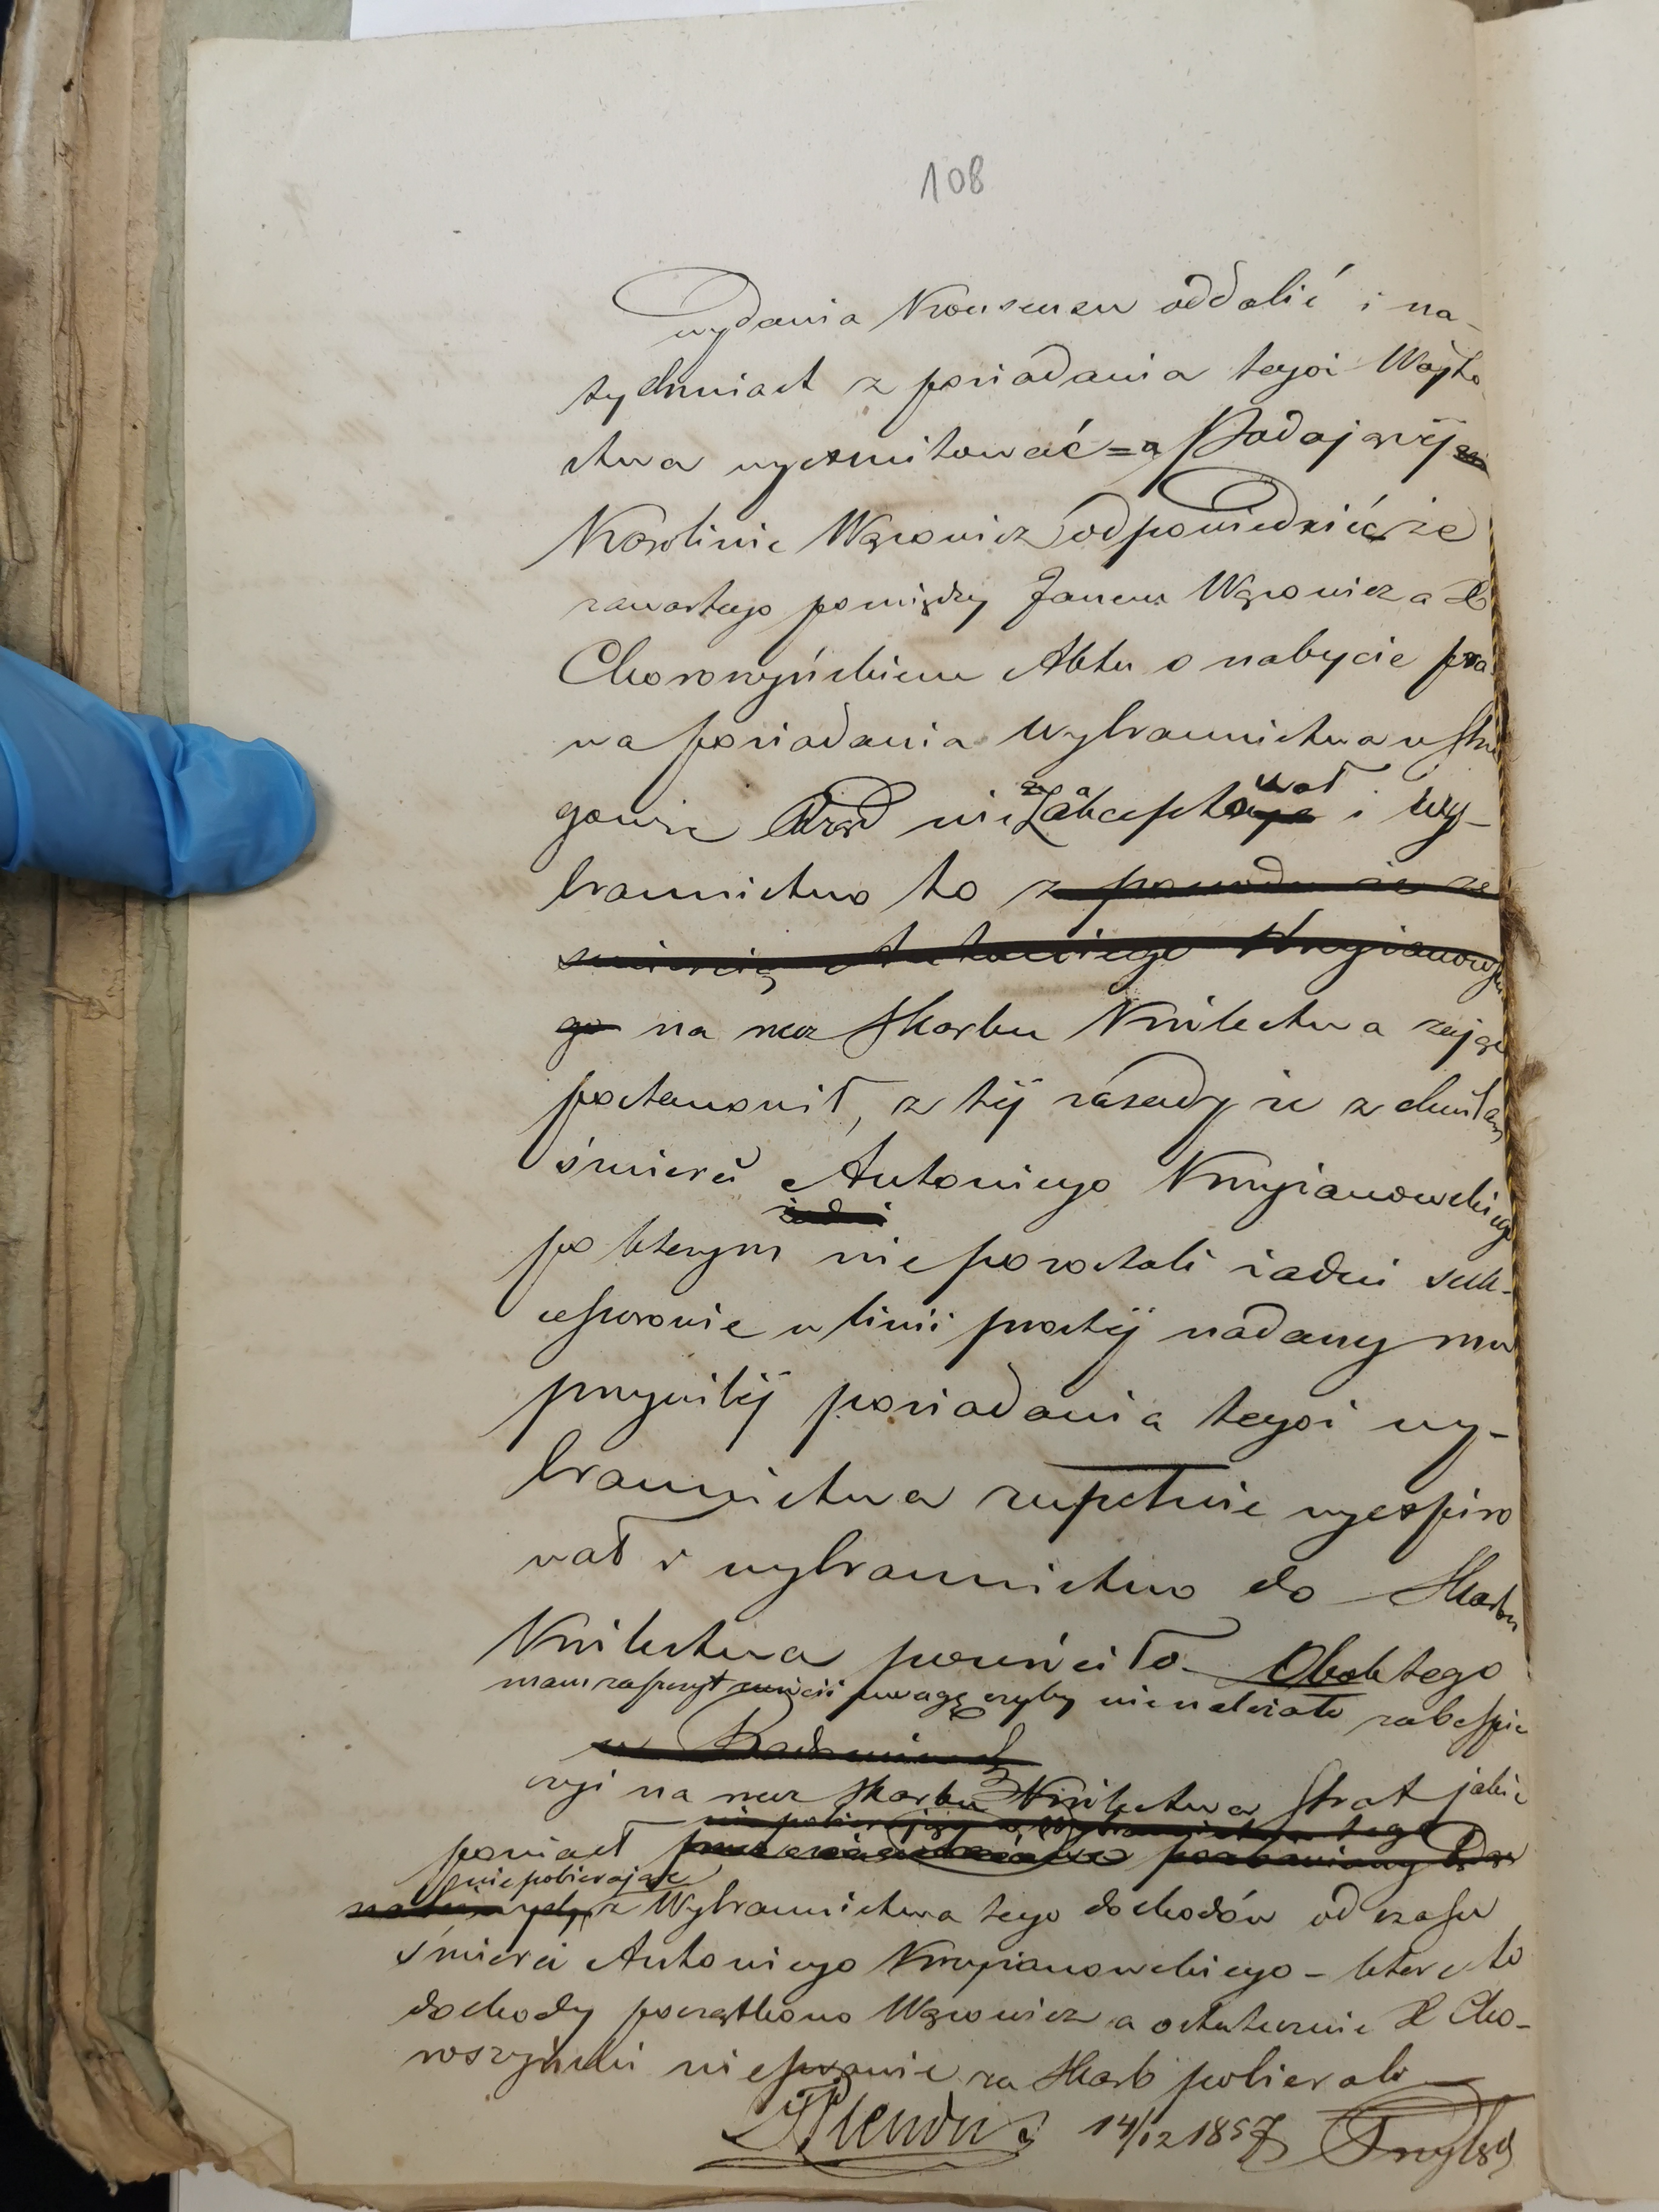 108
wydania Konsensu oddalić i na-
tychmiast z posiadania tegoż Wójto
stwa wyexmitować = a Podającéj
Karolinie Wąsowicz odpowiedzieć że
zawartego pomiędzy Janem Wąsowicz a
Choroszyńskim Aktu o nabycie pra
wa posiadania Wybraniectwa w
gowie Rząd nie zaakceptował i Wy-
braniectwo to z powodu że ze
śmiercią Antoniego Krzyżanowskie
go na rzecz Skarbu Królestwa zająć
postanowił, z téj zasady że z chwilą
śmierci Antoniego Krzyżanowskiego
po którym nie pozostali żadni suk-
cessorowie w linii prostéj nadany mu
przywiléj posiadania tegoż wy-
braniectwa zupełnie wyexpiro
wał i wybraniectwo do Skarbu
Królestwa powróciło. Obok tego
mam zaszczyt uwagę czyby nienależało zabespie
czyć na rzecz Skarbu Królestwa strat jakie
poniósł
niepobierając
z Wybraniectwa tego dochodów od czasu
śmierci Antoniego Krzyżanowskiego – które to
dochody początkowo Wąsowicz a ostatecznie Cho-
roszyński nieprawnie za Skarb pobierali
14/12 1857